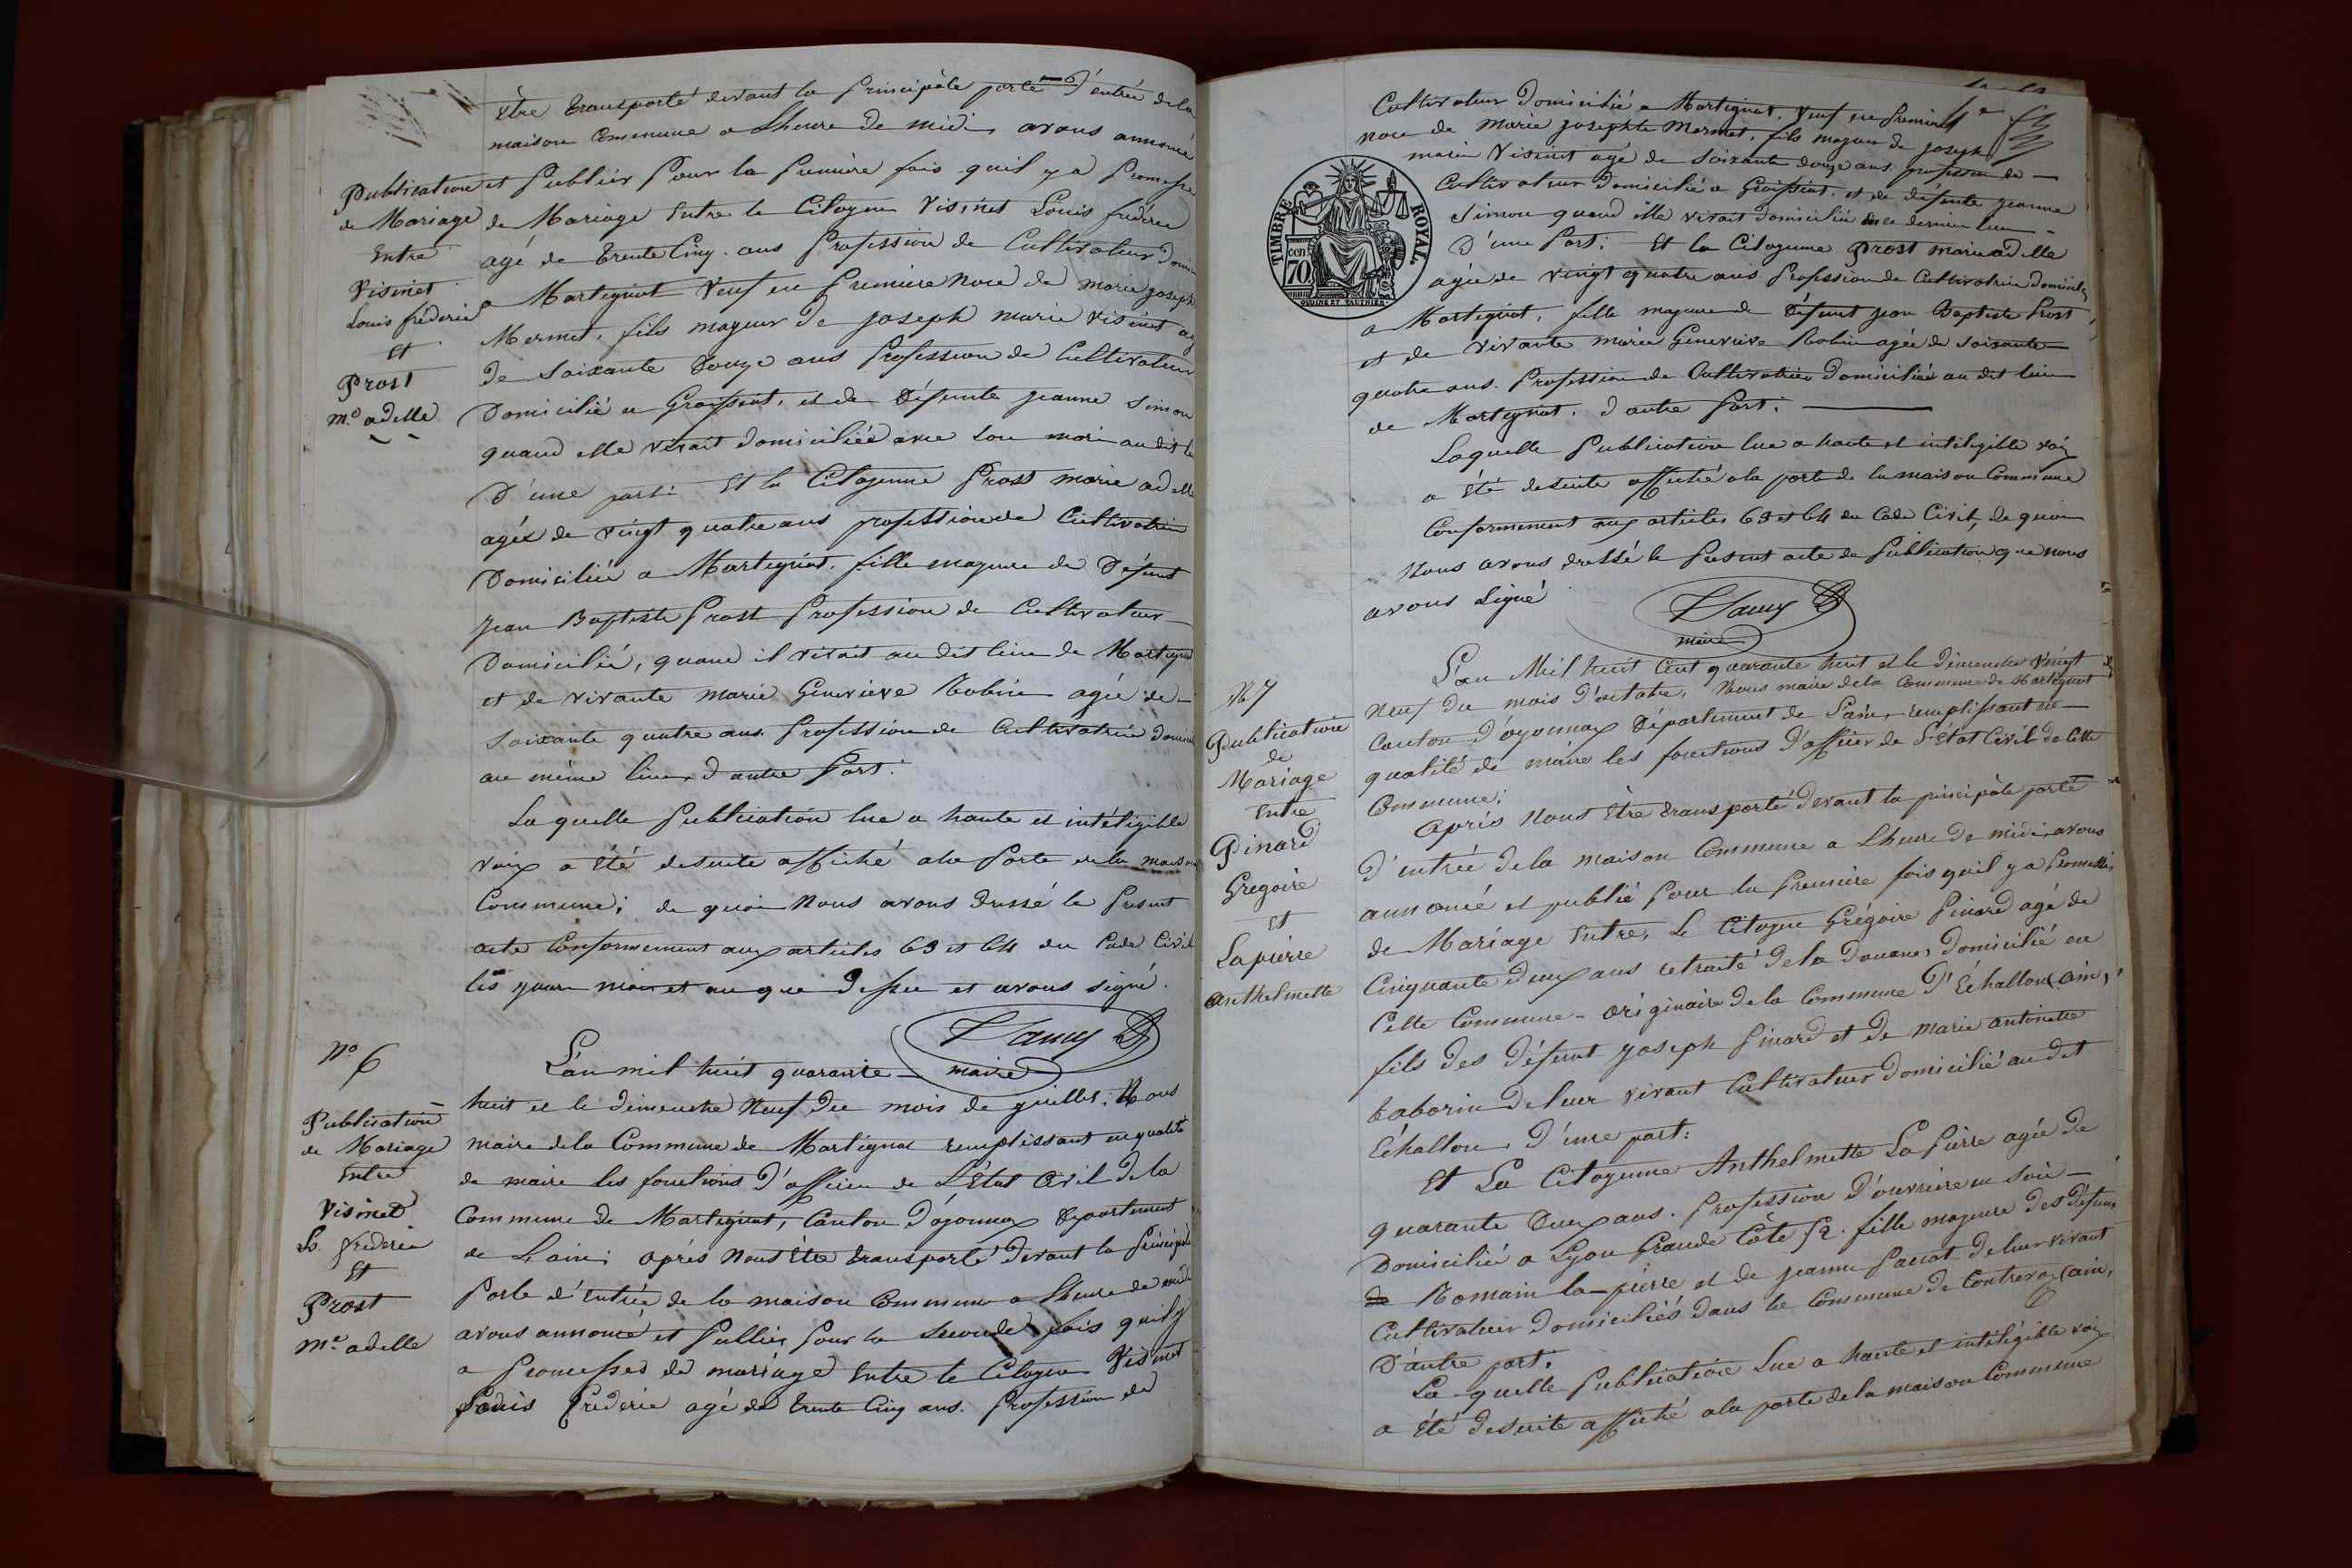 être transporté devant la principale porte d'entrée de la
maison Commune a Lheure de midi, avons annoncé
Publication
de Mariage
Entre
Visinet
Louis fréderic
et
Prost
me adelle
et Publiér Pour la Première fois quil y a Promesse
de Mariage Entre le Citoyen Visinet Louis fréderic
agé de trente Cinq ans Profession de Cultivateur
a Martignat Veuf en Premiere Noce de marie joseph
Mermet, fils mageur de joseph marie visinet
de soixante douze ans Profession de Cultivateur
Domicilié a Groissiat, et de Défunte jeanne Simon
quand elle vivait domiciliée avec son mari au dit
D'une part: Et la Citoyenne Prost marie adelle
agée de vingt quatre ans profession de Cultivatrice
Domiciliée a Martignat, fille mageure de Défunt
jean Baptiste Prost Profession de Cultivateur
Domicilié, quand il vivait au dit lieu de Martignat
et de vivante marie Genevieve Robin agée de
soixante quatre ans Profession de Cultivatrice
au même lieu, d'autre Part:
La quelle Publication lue a haute et intéligible
voix a été desuite affiché a la Porte de la maison
Commune; de quoi Nous avons dressé le Présent
acte Conformement aux articles 63 et 64 du Code Civil
les jour mois et an que dessu et avons signé.
maire
No 6
Publication
de Mariage
Entre
Visinet
Ls. frederic
Et
Prost
me adelle
L'an mil huit quarante
huit et le dimenche Neuf du mois de juillet; Nous
maire de la Commune de Martignat remplissant en qualité
de maire les fonctions d'officier de L'État Civil de la
Commune de Martignat, Canton d'oyonnax Département
de Lain; après nous être transporté devant la Principale
Porte d'entrée de la maison Commune a Lheure de midi
avons annoncé et Publiér Pour la Seconde fois quil y
a Promesses de mariage Entre le Citoyen Visinet
Louis Frederic agé de trente Cinq ans. Profession de
Cultivateur Domicilié a Martignat. Veuf en Premiere
noce de Marie josephte Mermet, fils mageur de joseph
marie Visinet agé de soixante douze ans. profession de
Cultivateur Domicilié a Groissiat, et de défunte jeanne
Simon quand elle vivait domiciliée dernier lieu
D'une Part; Et la Citoyenne Prost marie adelle
agée de vingt quatre ans Profession de Cultivatrice
a Martignat, fille mageure de Défunt jean Baptiste Prost
et de vivante marie Genevieve Robin agée de soixante
quatre ans. Profession de Cultivatrice Domiciliée au dit lieu
de Martignat. d'autre Part:
TIMBRE ROYAL.
70 cen
Laquelle Publication lue a haute et intéligible voix
a été desuite affiché a la porte de la maison Commune
Conformement aux articles 63 et 64 du Code Civil, de quoi
Nous avons dressé le Présent acte de Publication que nous
avons signé
maire
No 7
Publication
de
Mariage
Entre
Pinard
Gregoire
Et
Lapierre
Anthelmette
L'an Mil huit Cent quarante huit et le dimenche vingt
neuf du mois d'octobre, Nous maire de la Commune de Martignat
Canton d'oyonnax Département de Lain, remplissant en
qualité de maire les fonctions d'officier de L'État Civil de Cette
Commune;
Après Nous Être transporté devant la principale porte
d'entrée de la maison Commune a Lheure de midi, avons
annoncé et publié Pour la Première fois quil y a Promesse
de Mariage Entre, Le Citoyen Grégoire Pinard agé de
Cinquante deux ans retraité de la Douane, Domicilié en
Cette Commune - originaire de la Commune d'Échallon (ain),
fils des défunt joseph Pinard et de Marie antoinette
taborin de leur vivant Cultivateur domicilié au dit
Échallon, d'une part:
Et La Citoyenne Anthelmette La Pierre agée de
quarante Deux ans. Profession d'ouvriere en soie
Domicilié a Lyon Grande Côte fille mageure des défunt
Romain la-pierre et de jeanne de leur vivant
Cultivateur domiciliés dans la Commune de Contrevoz (ain,
D'autre part:
La-quelle Publication Lue a haute et intéligible voix
a été desuite affiché a la porte de la maison Commune